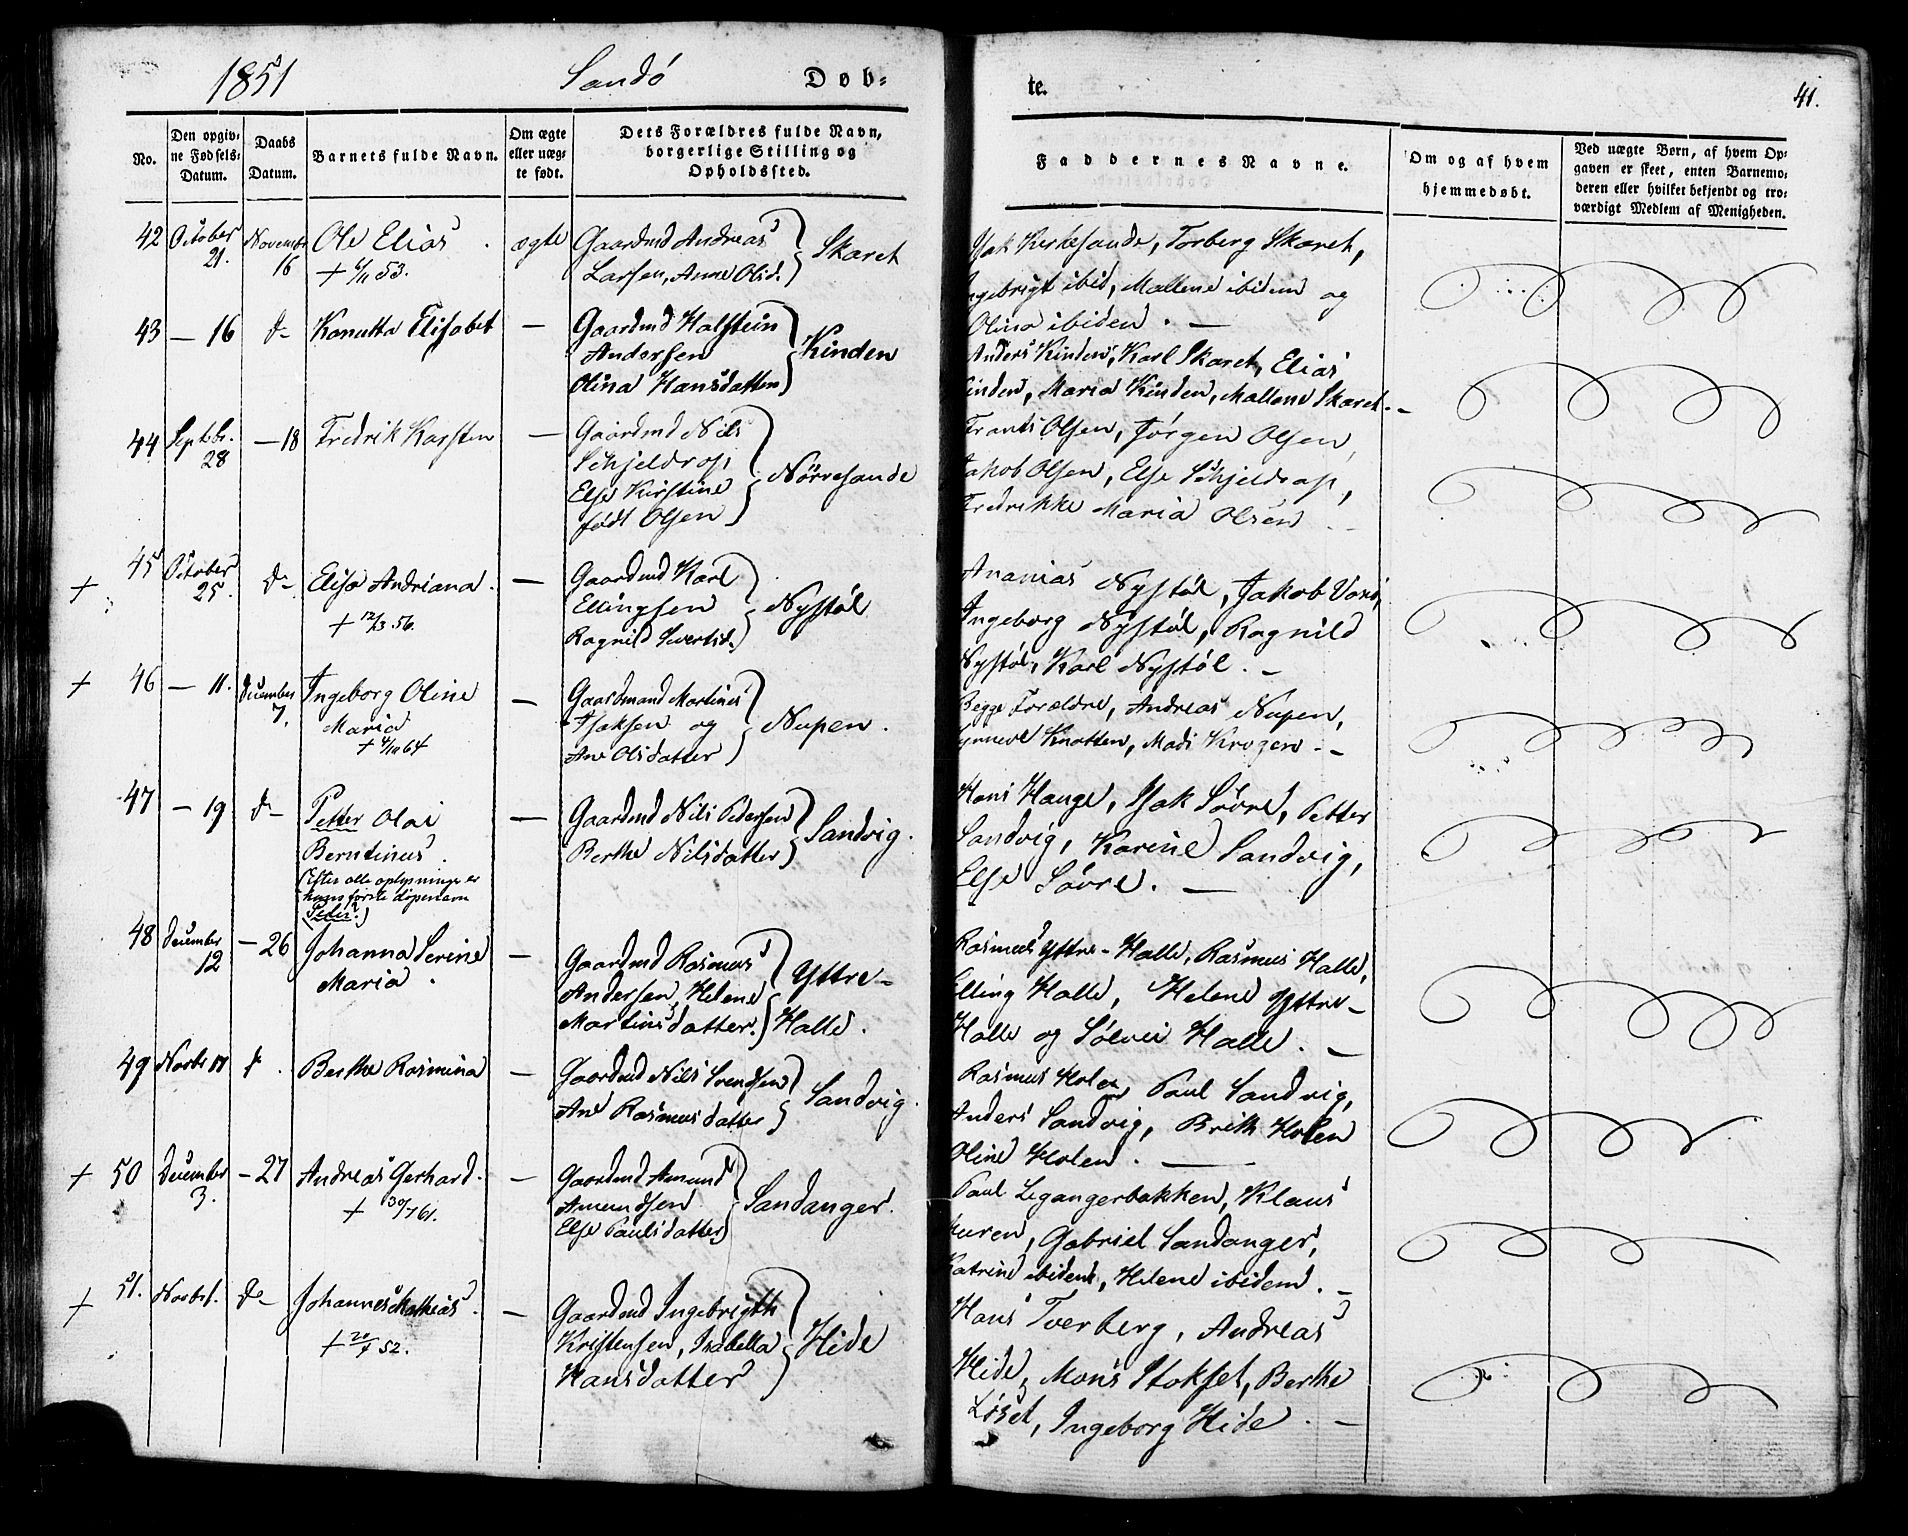 1851 Sandö Døb-
te. 41.
No.
Den opgiv-
ne Fødsels-
Datum.
Daabs
Datum.
Barnets fulde Navn.
Om ægte
eller uæg-
te født.
Dets Forældres fulde Navn,
borgerlige Stilling og
Opholdssted.
Faddernes Navne.
Om og af hvem
hjemmedøbt.
Ved uægte Børn, af hvem Op-
gaven er skeet, enten Barnemo-
deren eller hvilket bekjendt og tro-
værdigt Medlem af Menigheden.
42 October 21. November 16 Ole Elias
+ 6/11 53.
ægte
Gaardmd Andreas
Larsen, Anne Olsd.
Skaret
Isak Kirkesande, Torberg Skaret,
Ingebrigt ibid, Mallene ibidem og
Olina ibidem. —
43 — 16 d— Konutta Elisabet —
Gaardmd Halstein
Andersen
Olina Hansdatter
Kinden
Anders Kinden, Karl Skaret, Elias
Kinden, Maria Kinden, Mallene Skaret. —
44 Septbr. 28 — 18 Fredrik Karsten —
Gaardmd Nils
Schjeldrop
Else Kirstine
født Olsen
Nörresande
Frants Olsen, Jörgen Olsen,
Jakob Olsen, Else Schjeldrop,
Fredrikke Maria Olsen
+ 45 October 25. d— Elisa Andriana.
+ 12/3 56.
—
Gaardmd Karl
Ellingsen
Ragnild Sivertsd.
Nystöl
Ananias Nystöl, Jakob Vorö,
Ingeborg Nystöl, Ragnild
Nystöl, Karl Nystöl. —
+ 46 — 11. December 7. Ingeborg Oline
Maria
+ 4/10 64
—
Gaardmand Martines
Isaksen og
Ane Olsdatter
Nupen.
Begge Forældre, Andreas Nupen,
Knotten, Madi Krogen. —
47 — 19. d— Petter Olai
Berntinus.
(Efter alle oplysninger er
hans første døpenavn
Peter.)
—
Gaardmd Nils Pedersen
Berthe Nilsdatter
Sandvig.
Hans Hauge, Isak Sövre, Petter
Sandvig, Karine Sandvig,
Else Sövre. —
48 December 12 — 26 Johanna Serine
Maria.
—
Gaardmd Rasmus
Andersen, Helene
Martinsdatter.
Yttre-
Halle.
Rasmus Yttre-Halle, Rasmus Halle,
Elling Halle, Helene Yttre-
Halle og Sölvei Halle. —
49 Novbr 17 d. Berthe Rasmina —
Gaardmd Nils Svendsen
Ane Rasmusdatter
Sandvig.
Rasmus Holen, Paul Sandvig,
Anders Sandvig, Brith Holen
Oline Holen. —
+ 50 December 3. — 27 Andreas Gerhard.
+ 30/7 61.
—
Gaardmd Amund
Amundsen
Else Paulsdatter
Sandanger.
Paul Legangerbakken, Klaus
Furen, Gabriel Sandanger,
Katrine ibidem, Helene ibidem. —
+ 51. Novbr 1. d— Johannes Mathias.
+ 20/1 52.
—
Gaardmd Ingebrigth
Kristensen, Isabella
Hansdatter
Hide
Hans Tverberg, Andreas
Hide, Mons Stokset, Berthe
Löset, Ingeborg Hide. —